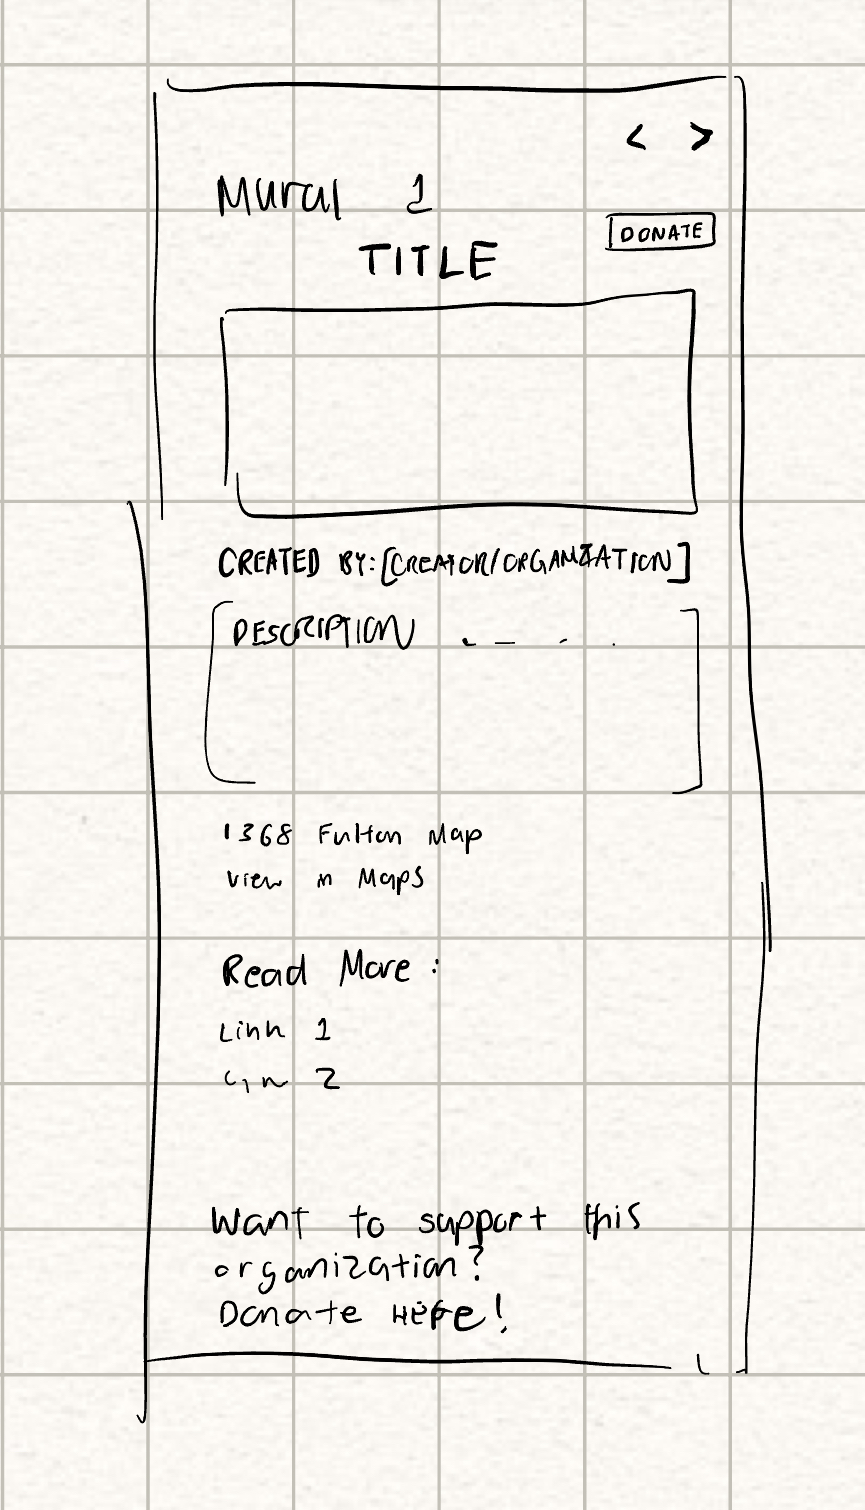 < >
Mural 1
DONATE
TITLE
CREATED BY: [CREATOR/ORGANIZATION]
DESCRIPTION
1368 Fulton Map
View in Maps
Read More :
Link 1
2
Want to support this
organization?
Donate HERe!